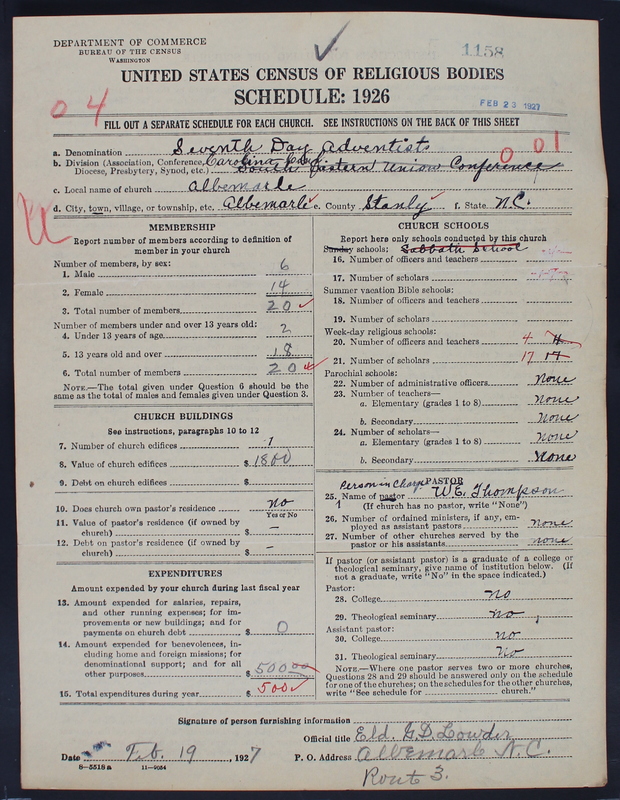 DEPARTMENT OF COMMERCE
BUREAU OF THE CENSUS
WASHINGTON
1158
UNITED STATES CENSUS OF RELIGIOUS BODIES
SCHEDULE: 1926
FEB 23 1927
04
FILL OUT A SEPARATE SCHEDULE FOR EACH CHURCH. SEE INSTRUCTIONS ON THE BACK OF THIS SHEET
001
a. Denomination Seventh Day Adventist
b. Division (Association, Conference, Carolina Conf
Diocese, Presbytery, Synod, etc.) South Eastern Union Conference
c. Local name of church Albemarle
d. City, town, village, or township, etc. Albemarle e. County Stanly f. State N.C.
MEMBERSHIP
Report number of members according to definition of
member in your church
Number of members, by sex:
1. Male 6
2. Female 14
3. Total number of members 20
Number of members under and over 13 years old:
4. Under 13 years of age 2
5. 13 years old and over 18
6. Total number of members 20
NOTE.—The total given under Question 6 should be
same as the total of males and females given under Question 3.
CHURCH BUILDINGS
See instructions, paragraphs 10 to 12
7. Number of church edifices 1
8. Value of church edifices $ 1800
9. Debt on church edifices $
10. Does church own pastor's residence No
Yes or No
11. Value of pastor's residence (if owned by
church) $ –
12. Debt on pastor's residence (if owned by
church) $ –
EXPENDITURES
Amount expended by your church during last fiscal year
13. Amount expended for salaries, repairs,
and other running expenses; for im-
provements or new buildings; and for
payments on church debt $ 0
14. Amount expended for benevolences, in-
cluding home and foreign missions; for
denominational support; and for all
other purposes $ 500 00
15. Total expenditures during year $ 500
CHURCH SCHOOLS
Report here only schools conducted by this church
Sunday schools: Sabbath School
16. Number of officers and teachers
17. Number of scholars
Summer vacation Bible schools:
18. Number of officers and teachers
19. Number of scholars
Week-day religious schools:
20. Number of officers and teachers 4 4
21. Number of scholars 17 17
Parochial schools:
22. Number of administrative officers None
23. Number of teachers—
a. Elementary (grades 1 to 8) None
b. Secondary None
24. Number of scholars—
a. Elementary (grades 1 to 8) None
b. Secondary None
Person in Charge PASTOR
25. Name of pastor W.E. Thompson
(If church has no pastor, write "None")
26. Number of ordained ministers, if any, em-
ployed as assistant pastors none
27. Number of other churches served by the
pastor or his assistants none
If pastor (or assistant pastor) is a graduate of a college or
theological seminary, give name of institution below. (If
not a graduate, write "No" in the space indicated.)
Pastor:
28. College no
29. Theological seminary no
Assistant pastor:
30. College no
31. Theological seminary No
NOTE.—Where one pastor serves two or more churches,
Questions 28 and 29 should be answered only on the schedule
for one of the churches; on the schedules for the other churches,
write "See schedule for church."
Signature of person furnishing information
Official title Eld. G.D. Lowder
Date Feb. 19, 1927 P. O. Address Albemarle N.C.
8-5518a 11-9034
Route 3.